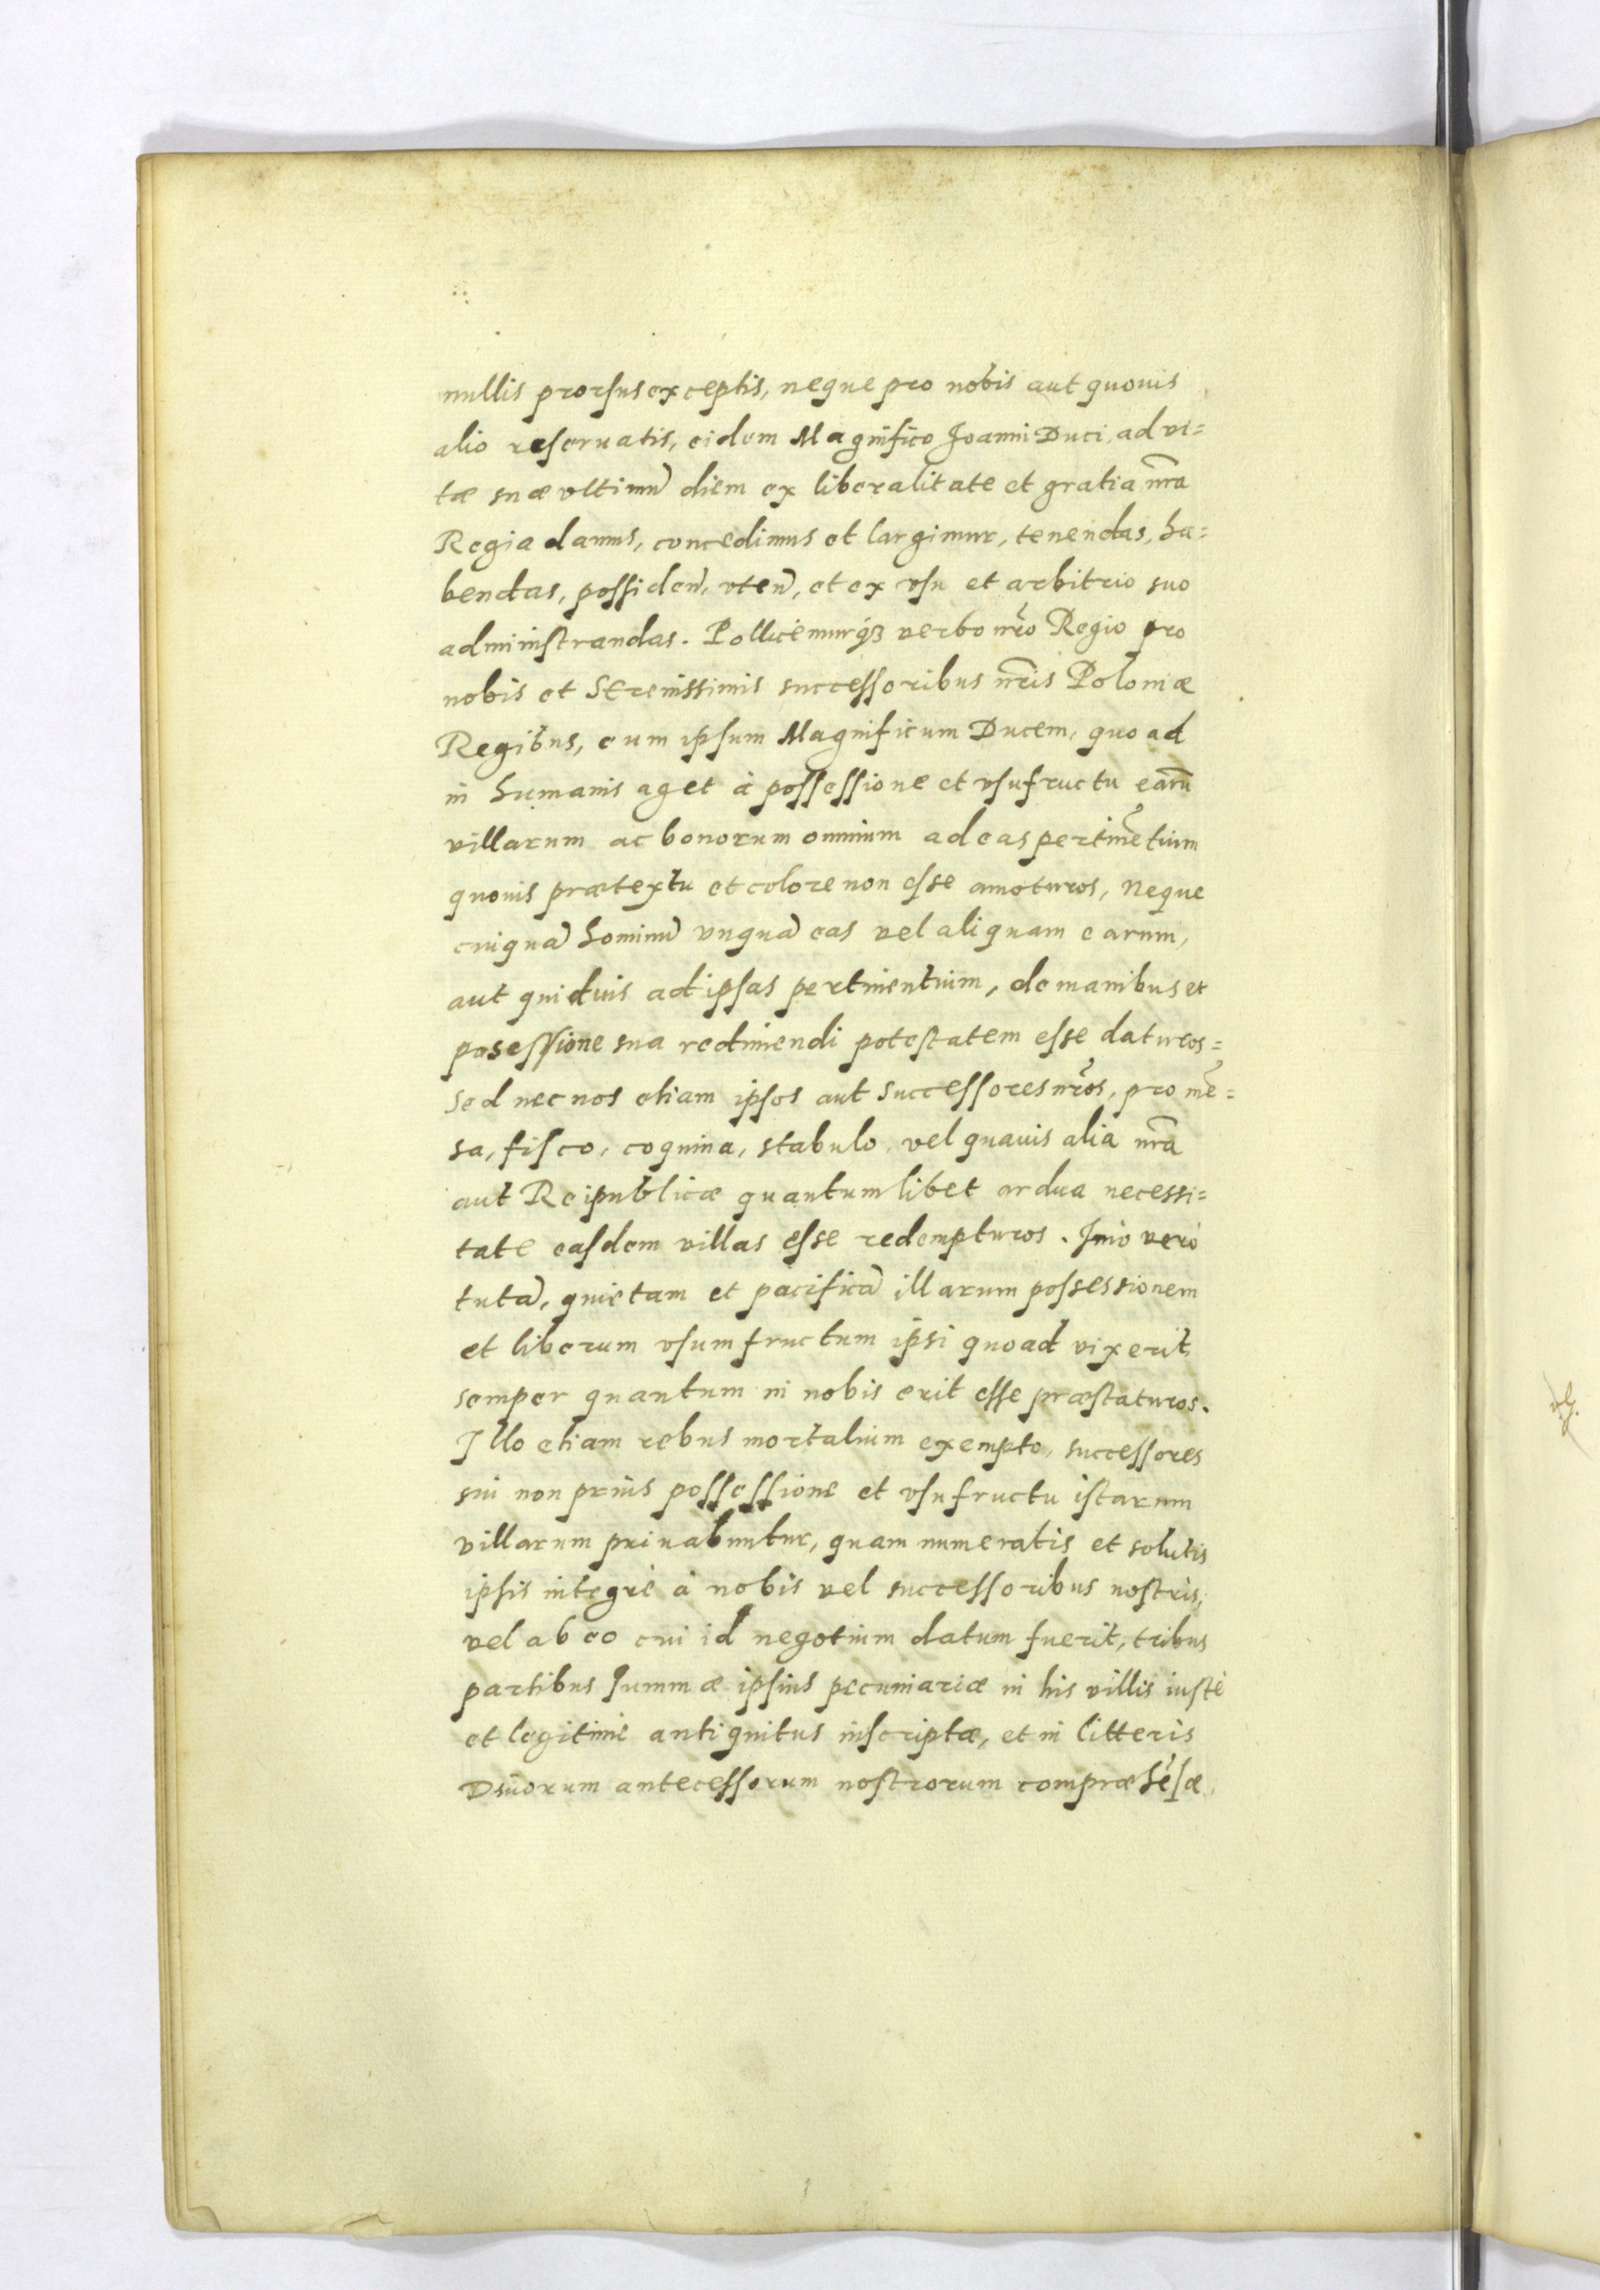 nullis prorsus exceptis, neque pro nobis aut quouis
alio reseruatis, eidem Magnifico Joanni Duci, ad vi=
tæ suæ vltimũ diem ex liberalitate et gratia nr̃a
Regia damus, concedimus et largimur, tenendas, ha=
bendas, possiden̄, vten̄, et ex vsu et arbitrio suo
administrandas. Pollicemurqȝ verbo nr̃o Regio pro
nobis et Serenissimis successoribus nr̃is Poloniæ
Regibus, eum ipsum Magnificum Ducem, quo ad
in humanis aget à possessione et vsufructu earũ
villarum ac bonorum omnium ad eas pertinẽtium
quouis prætextu et colore non esse amoturos, Neque
cuiquã hominũ vnquã eas vel aliquam earum,
aut quiduis ad ipsas pertinentium, de manibus et
posessione sua redimendi potestatem esse daturos=
Sed nec nos etiam ipsos aut successores nr̃os, pro mẽ=
sa, fisco, coquina, stabulo, vel quauis alia nr̃a
aut Reipublicæ quantumlibet ardua necessi=
tate easdem villas esse redempturos. Imò verò
tutã, quietam et pacificã illarum possessionem
et liberum vsumfructum ipsi quoad vixerit,
semper quantum in nobis erit esse præstaturos.
Illo etiam rebus mortalium exempto, successores
sui non prius possessione et vsufructu istarum
villarum priuabuntur, quam numeratis et solutis
ipsis integrè à nobis vel successoribus nostris,
vel ab eo cui id negotium datum fuerit, tribus
partibus summæ ipsius pecuniariæ in his villis iustè
et legitimè antiquitus inscriptæ, et in litteris
Diuorum antecessorum nostrorum compræhẽsæ,